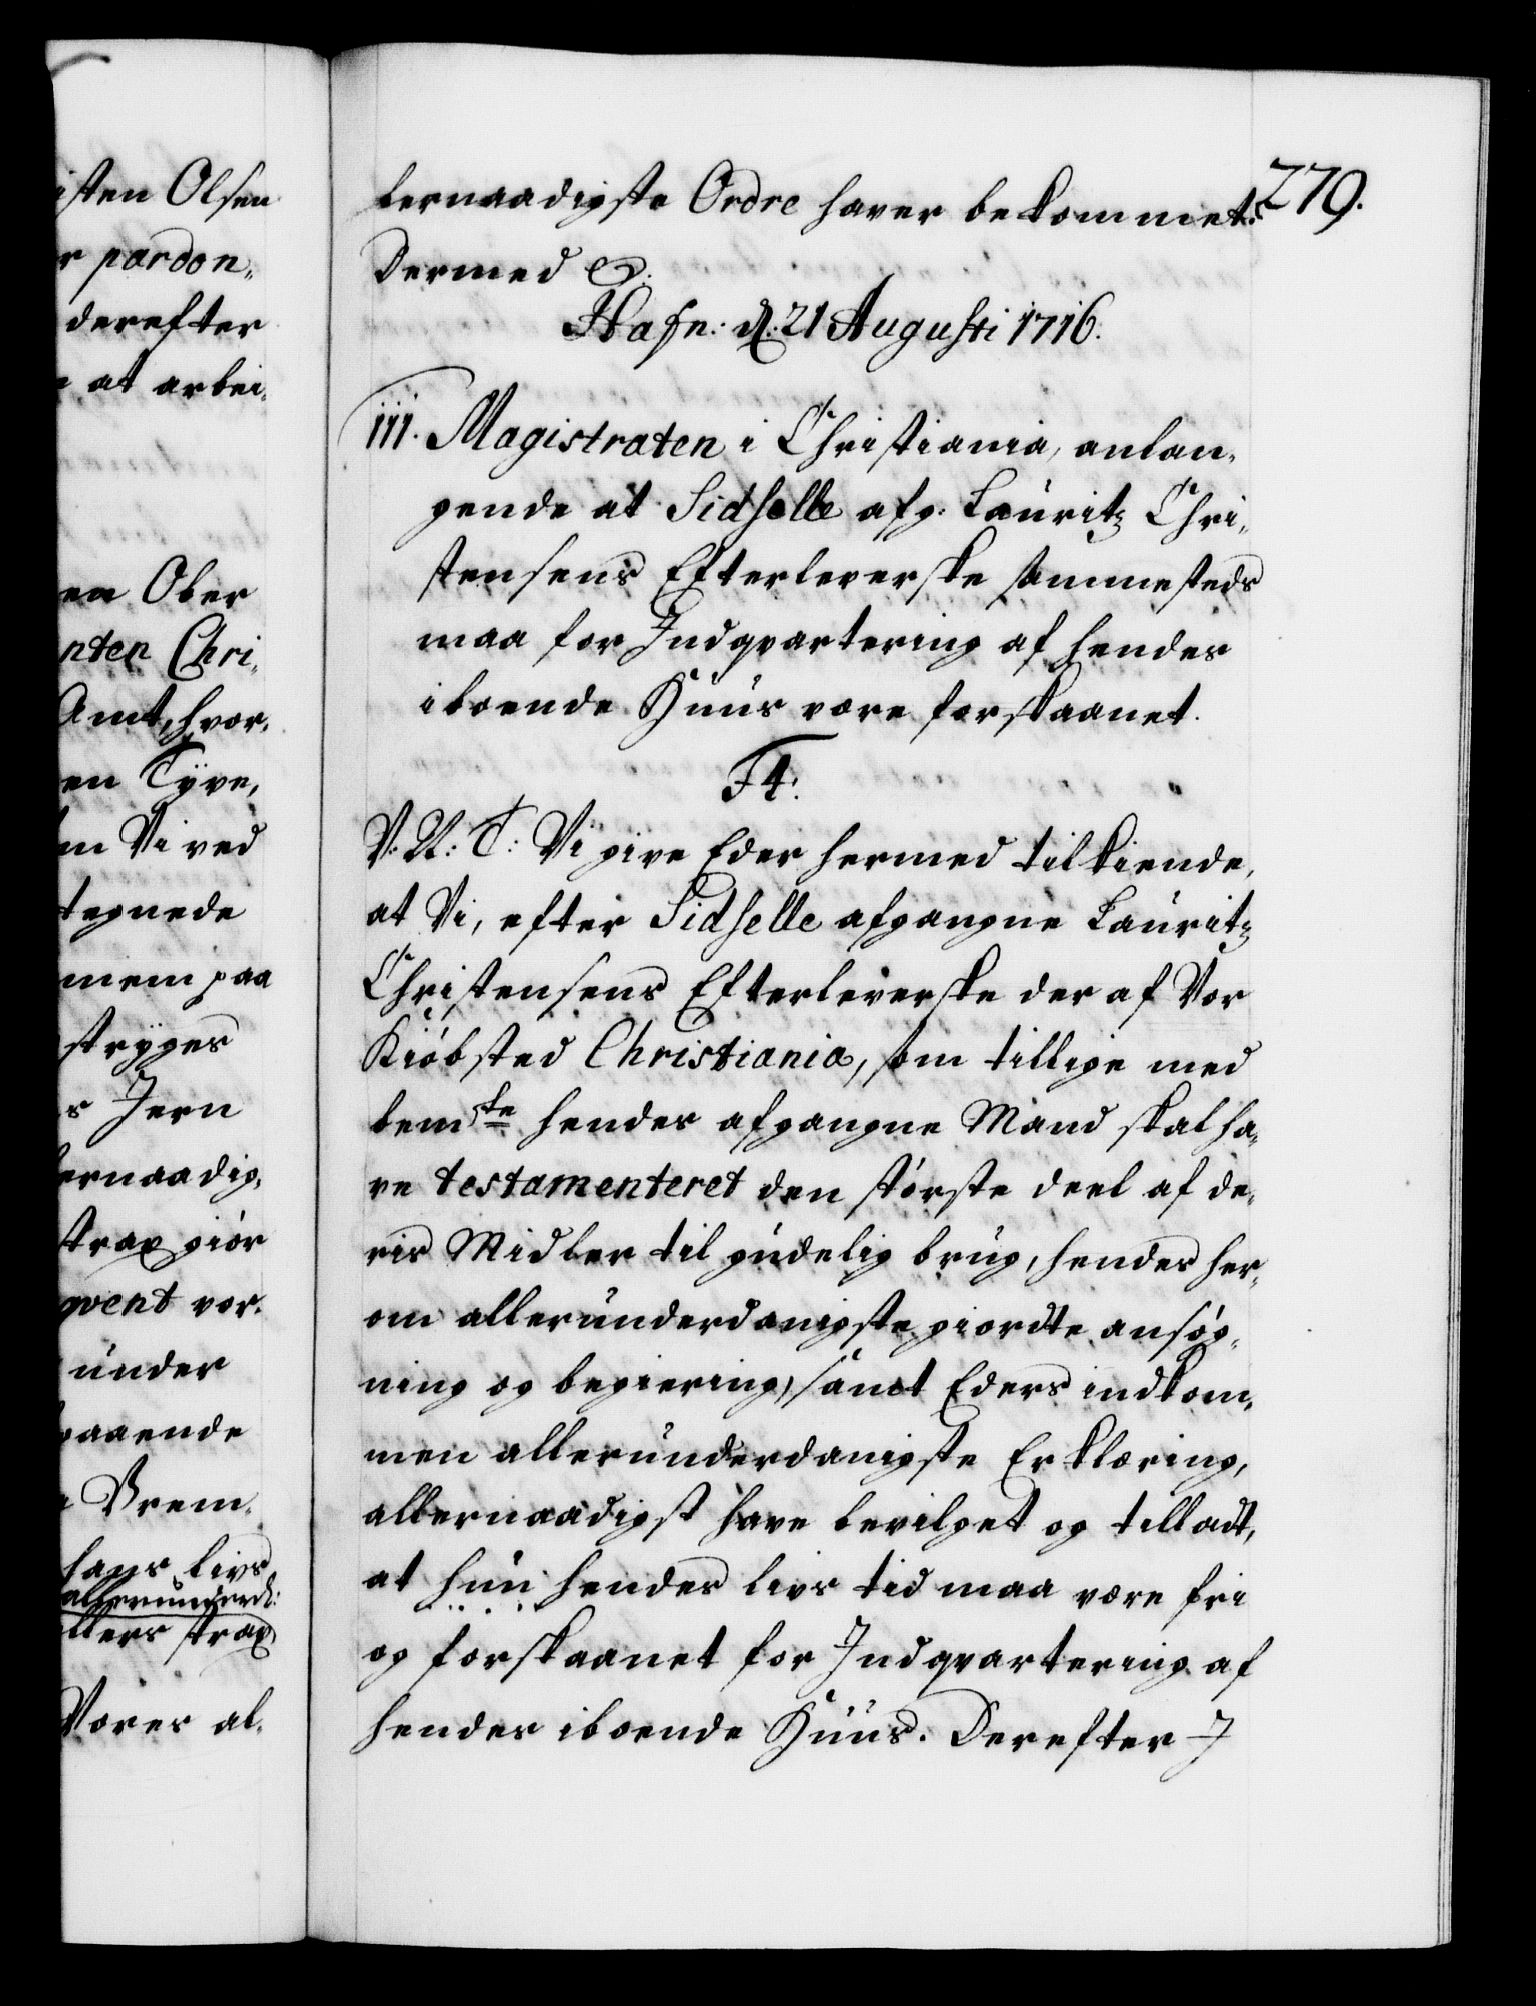 isten Olsen
r pardon,
derefter
e at arbei,
en Ober
nten Chri,
Amt, hvor,
en Tÿve,
m Vi ved
tegnede
mem paa
strÿges
s Jern
lernaadig,
strax giør
qvent vor,
under
gaaende
e Brem,
hans Livs
allerunderd:
ellers strax
Vores al,
279.
lernaadigste Ordre haver bekommet.
Dermed &.
Hafn: d: 21 Augusti 1716.
111. Magistraten i Christiania, anlan,
gende at Sidselle afg. Lauritz Chri,
stensens Efterleverske sammesteds
maa for Indqvartering af hendes
iboende Huus være forskaanet.
F 4.
V: U: T: Vi give Eder hermed tilkiende,
at Vi, efter Sidselle afgangne Lauritz
Christensens Efterleverske der af Vor
Kiøbsted Christiania, som tillige med
bemte hendes afgangne Mand skal ha,
ve testamenteret den største deel af de,
ris Midler til gudelig brug, hendes her,
om allerunderdanigste giordte ansøg,
ning og begiering, samt Eders indkom,
men allerunderdanigste Erklæring,
allernaadigst have bevilget og tilladt,
at hun hendes livs tid maa være fri
og forskaanet for Indqvartering af
hendes iboende Huus. Derefter I